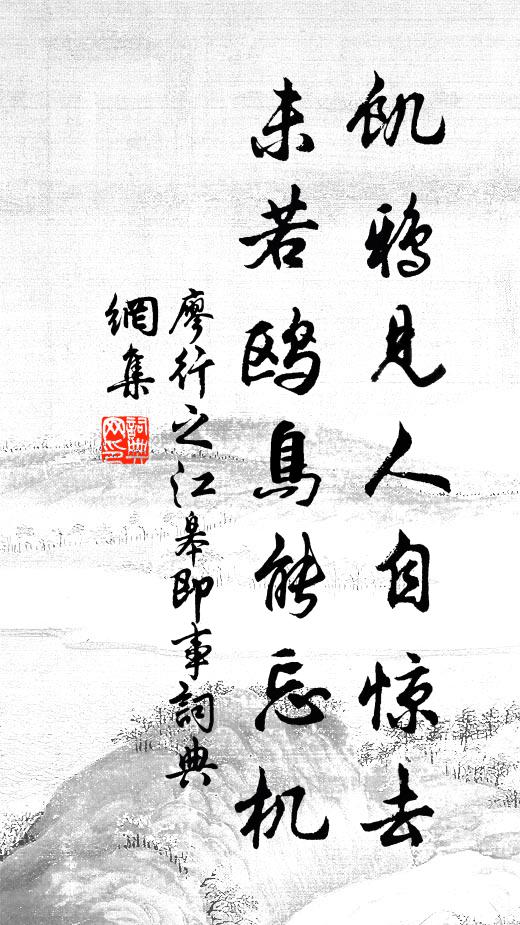 飢鴉見人自惊去
未若鸥鳥能忘机
廖行之江皋即事詞典
網集
詞典網印